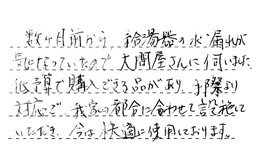 数ヶ月前から 給湯器の水漏れが
気になっていたので 大問屋さんに伺いました
低予算で購入できる品があり、手際よい
対応で 我家の都合に合わせて設施して
いただき 今は快適に使用しております。